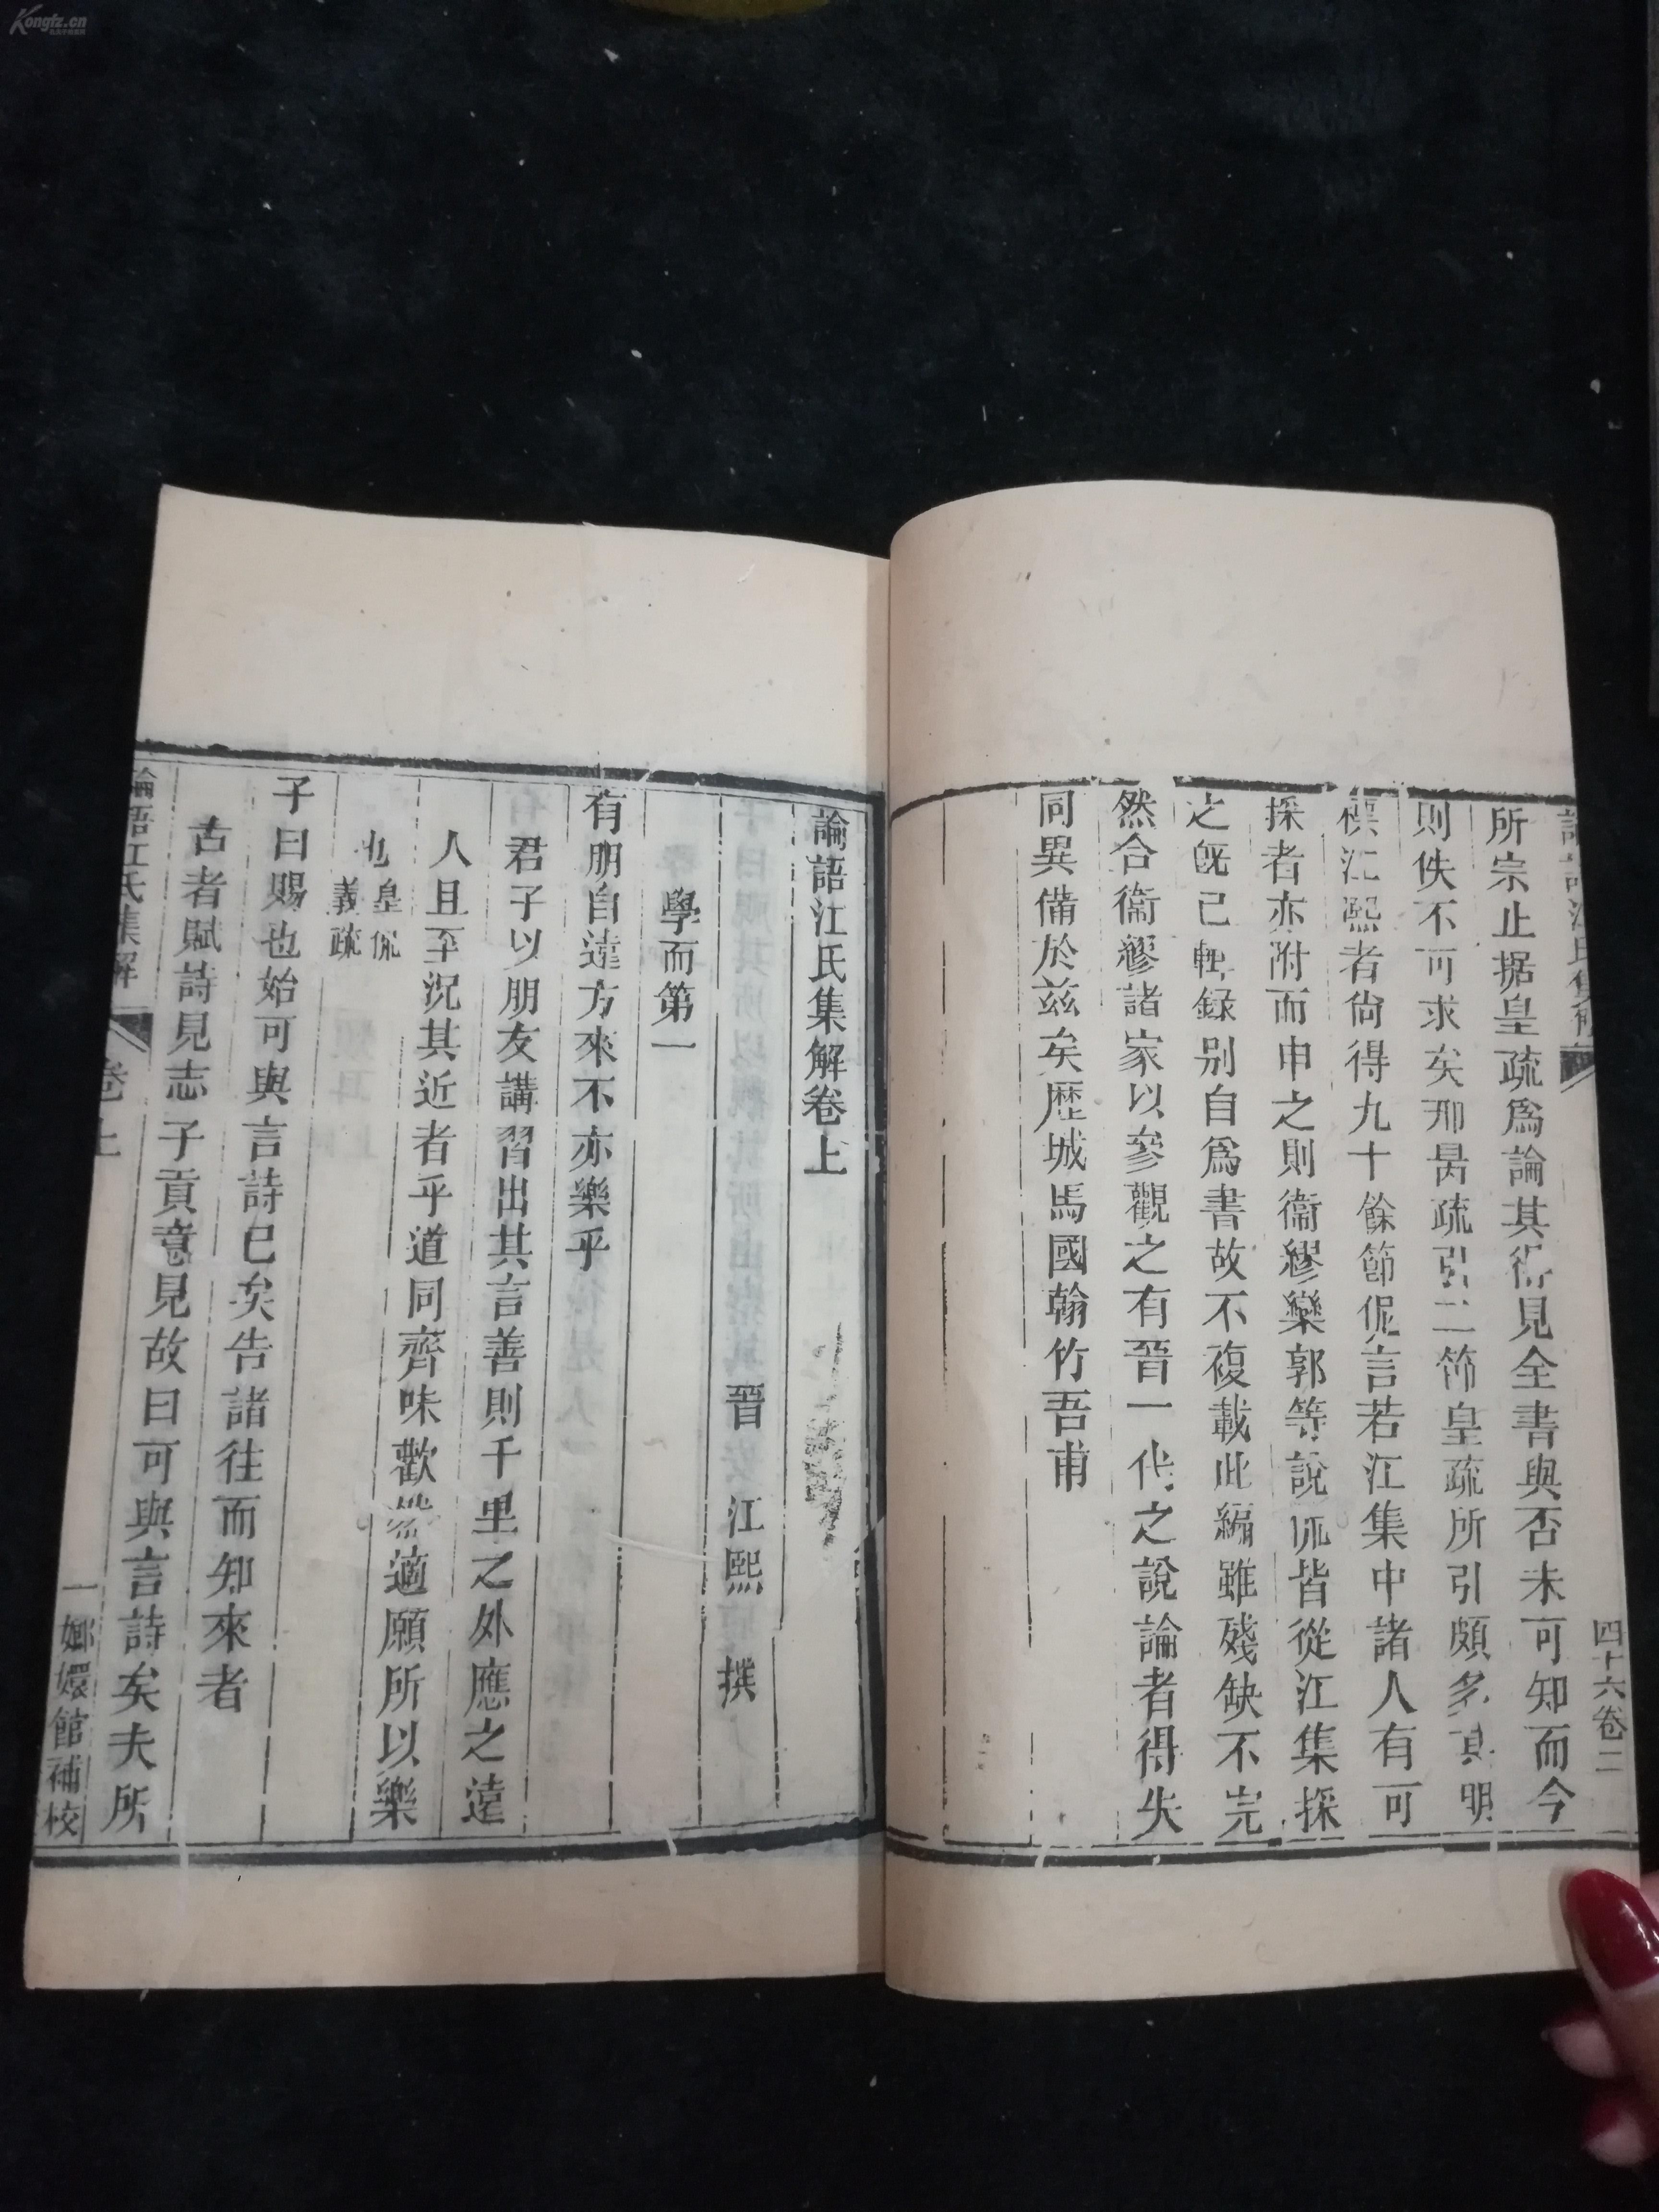 Kongfz.cn
四十六卷二
所宗止据皇疏爲論其得見全書與否未可知而今
則佚不可求矣邢昺疏引二節皇疏所引頗多其明
標江熙者尚得九十餘節侃言若江集中諸人有可
採者亦附而申之則衞繆欒郭等說侃皆從江集採
之旣已輒録别自爲書故不複載此編雖殘缺不完
然合衞繆諸家以參觀之有晉一代之說論者得失
同異備於兹矣歷城馬國翰竹吾甫
論語江氏集解卷上
晉 江熙 撰
學而第一
有朋自遠方來不亦樂乎
君子以朋友講習出其言善則千里之外應之遠
人且至況其近者乎道同齊味歡然適願所以樂
也皇侃義疏
子曰賜也始可與言詩已矣告諸往而知來者
古者賦詩見志子貢意見故曰可與言詩矣夫所
論語江氏集解 卷上 一 嫏嬛館補校